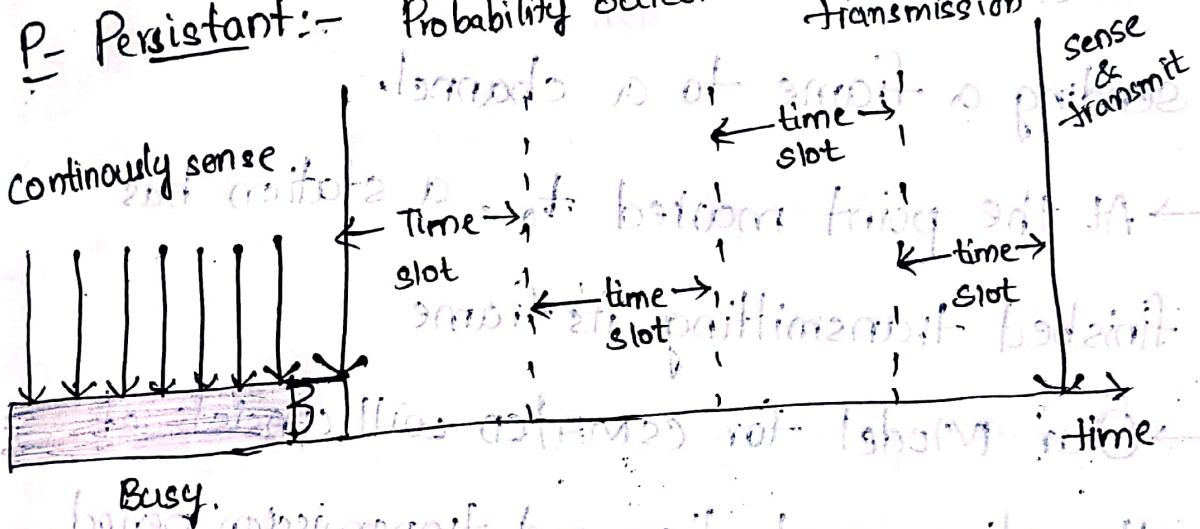 P- Persistant:- Probability
transmission
sense
&
transmit
continously sense
Time
slot
time
slot
time
slot
time
slot
B
time
Busy.